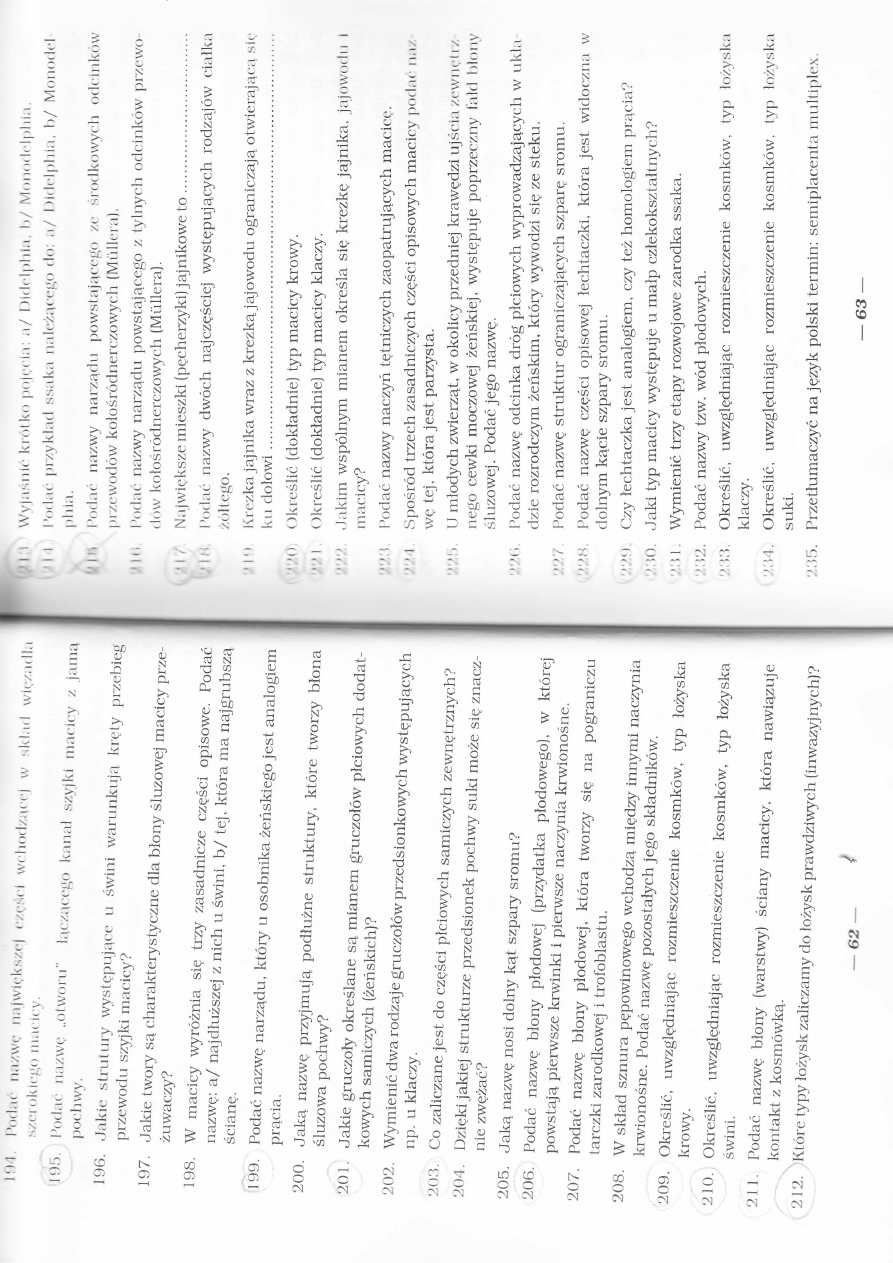 194. Podać nazwę największej części wchodzącej w skład więzadła
szerokiego macicy.
195. Podać nazwę „otworu" łączącego kanał szyjki macicy z jamą
pochwy.
196. Jakie strutury występujące u świni warunkują kręty przebieg
przewodu szyjki macicy?
197. Jakie twory są charakterystyczne dla błony śluzowej macicy prze-
żuwaczy?
198. W macicy wyróżnia się trzy zasadnicze części opisowe. Podać
nazwę: a/ najdłuższej z nich u świni, b/ tej, która ma najgrubszą
ścianę.
199. Podać nazwę narządu, który u osobnika żeńskiego jest analogiem
prącia.
200. Jaką nazwę przyjmują podłużne struktury, które tworzy błona
śluzowa pochwy?
201. Jakie gruczoły określane są mianem gruczołów płciowych dodat-
kowych samiczych (żeńskich)?
202. Wymienić dwa rodzaje gruczołów przedsionkowych występujących
np. u klaczy.
203. Co zaliczane jest do części płciowych samiczych zewnętrznych?
204. Dzięki jakiej strukturze przedsionek pochwy suki może się znacz-
nie zwężać?
205. Jaką nazwę nosi dolny kąt szpary sromu?
206. Podać nazwę błony płodowej (przydatka płodowego), w której
powstają pierwsze krwinki i pierwsze naczynia krwionośne.
207. Podać nazwę błony płodowej, która tworzy się na pograniczu
tarczki zarodkowej i trofoblastu.
208. W skład sznura pępowinowego wchodzą między innymi naczynia
krwionośne. Podać nazwę pozostałych jego składników.
209. Określić, uwzględniając rozmieszczenie kosmków, typ łożyska
krowy.
210. Określić, uwzględniając rozmieszczenie kosmków, typ łożyska
świni.
211. Podać nazwę błony (warstwy) ściany macicy, która nawiązuje
kontakt z kosmówką.
212. Które typy łożysk zaliczamy do łożysk prawdziwych (inwazyjnych)?
— 62 —
213. Wyjaśnić krótko pojęcia: a/ Didelphia, b/ Monodelphia.
214. Podać przykład ssaka należącego do: a/ Didelphia, b/ Monodel-
phia.
215. Podać nazwy narządu powstającego ze środkowych odcinków
przewodów kołośródnerczowych (Müllera).
216. Podać nazwy narządu powstającego z tylnych odcinków przewo-
dów kołośródnerczowych (Müllera).
217. Największe mieszki (pęcherzyki) jajnikowe to ..............................
218. Podać nazwy dwóch najczęściej występujących rodzajów ciałka
żółtego.
219. Krezka jajnika wraz z krezką jajowodu ograniczają otwierającą się
ku dołowi ..............................................................................
220. Określić (dokładnie) typ macicy krowy.
221. Określić (dokładnie) typ macicy klaczy.
222. Jakim wspólnym mianem określa się krezkę jajnika, jajowodu i
macicy?
223. Podać nazwy naczyń tętniczych zaopatrujących macicę.
224. Spośród trzech zasadniczych części opisowych macicy podać naz-
wę tej, która jest parzysta.
225. U młodych zwierząt, w okolicy przedniej krawędzi ujścia zewnętrz-
nego cewki moczowej żeńskiej, występuje poprzeczny fałd błony
śluzowej. Podać jego nazwę.
226. Podać nazwę odcinka dróg płciowych wyprowadzających w ukła-
dzie rozrodczym żeńskim, który wywodzi się ze steku.
227. Podać nazwę struktur ograniczających szparę sromu.
228. Podać nazwę części opisowej łechtaczki, która jest widoczna w
dolnym kącie szpary sromu.
229. Czy łechtaczka jest analogiem, czy też homologiem prącia?
230. Jaki typ macicy występuje u małp człekokształtnych?
231. Wymienić trzy etapy rozwojowe zarodka ssaka.
232. Podać nazwy tzw. wód płodowych.
233. Określić, uwzględniając rozmieszczenie kosmków, typ łożyska
klaczy.
234. Określić, uwzględniając rozmieszczenie kosmków, typ łożyska
suki.
235. Przetłumaczyć na język polski termin: semiplacenta multiplex.
— 63 —